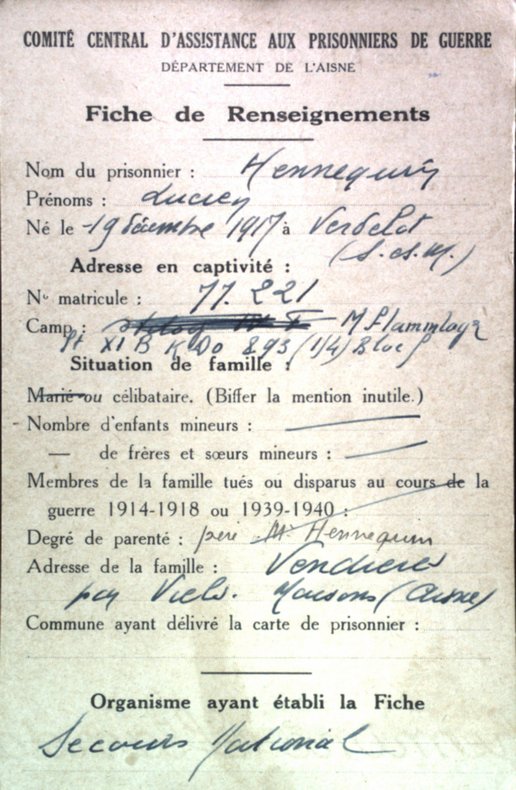 COMITÉ CENTRAL D'ASSISTANCE AUX PRISONNIERS DE GUERRE
DÉPARTEMENT DE L'AISNE
Fiche de Renseignements
Nom du prisonnier : Hennequin
Prénoms : Lucien
Né le 19 décembre 1917 à Verdelot
(S.-et-M.)
Adresse en captivité :
N° matricule : 77.221
Camp : M Stammlager
St XI B KDo 893 (1/4)
Situation de famille :
Marié ou célibataire. (Biffer la mention inutile.)
Nombre d'enfants mineurs :
— de frères et sœurs mineurs :
Membres de la famille tués ou disparus au cours de la
guerre 1914-1918 ou 1939-1940 :
Degré de parenté : père Mr Hennequin
Adresse de la famille : Vendières
par Viels. Maisons (Aisne)
Commune ayant délivré la carte de prisonnier :
Organisme ayant établi la Fiche
Secours National